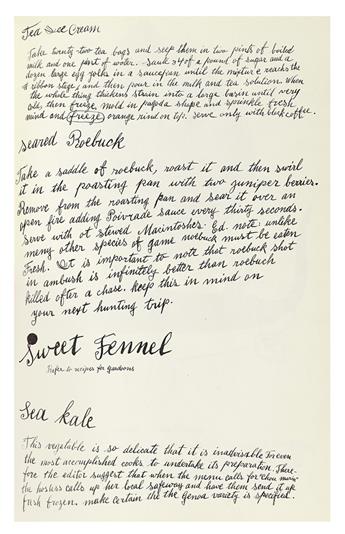 Tea Ice Cream
Take twenty-two tea bags and seep them in two pints of boiled
milk and one part of water. Sauté 3/4 of a pound of sugar and a
dozen large egg yolks in a saucepan until the mixture reaches the
ribbon stage; and then pour in the milk and tea solution. When
the whole thing thickens strain into a large basin until very
cold, then frieze. mold in pagoda shape and sprinkle fresh
mind and (frieze) orange rind on top. Serve only with black coffee.
Seared Roebuck
Take a saddle of roebuck, roast it and then swirl
it in the roasting pan with two juniper berries.
Remove from the roasting pan and sear it over an
open fire adding Poivrade sauce every thirty seconds.
serve with ot stewed Macintoshes. Ed. note: unlike
meny other species of game roebuck must be eaten
Fresh. It is important to note that roebuck shot
in ambush is infinitely better than roebuck
killed after a chase. keep this in mind on
your next hunting trip.
Sweet Fennel
Refer to recipes for Guardoons
Sea kale
This vegetable is so delicate that it is inadvisable for even
the most accomplished cooks to undertake its preparation. There-
fore the editor suggest that when the menu calls for "chou marin"
the hostess calls up her local safeway and have them send it up
fresh frozen. make certain the the Genoa variety is specified.